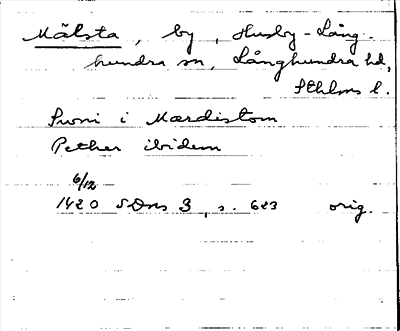 Mälsta, by, Husby-Lång-
hundra sn, Långhundra hd,
Sthlms l.
Swni i Mærdistom
Pether ibidem
6/12
1420 SDns 3, s. 623 orig.